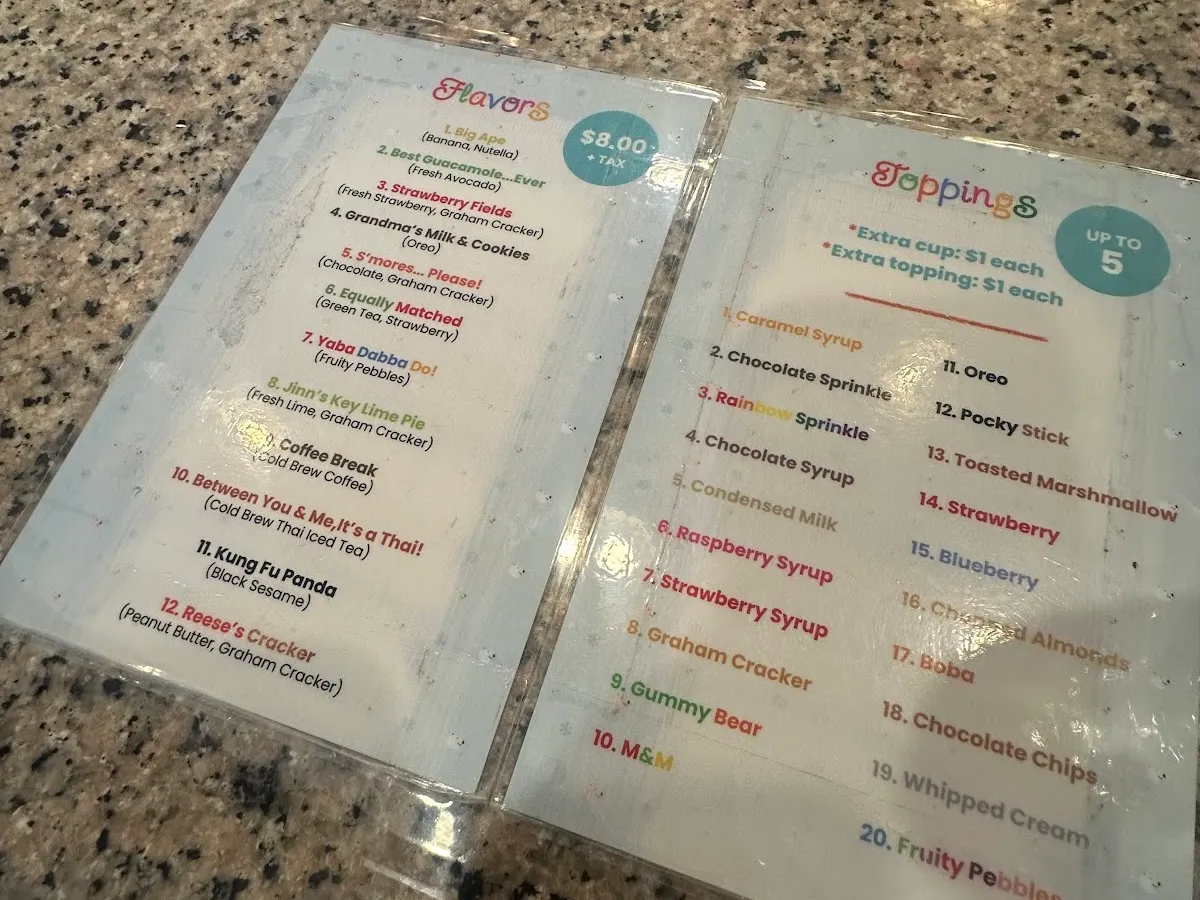 Flavors
$8.00
+ TAX
1. Big Ape
(Banana, Nutella)
2. Best Guacamole...Ever
(Fresh Avocado)
3. Strawberry Fields
(Fresh Strawberry, Graham Cracker)
4. Grandma's Milk & Cookies
(Oreo)
5. S'mores... Please!
(Chocolate, Graham Cracker)
6. Equally Matched
(Green Tea, Strawberry)
7. Yaba Dabba Do!
(Fruity Pebbles)
8. Jinn's Key Lime Pie
(Fresh Lime, Graham Cracker)
9. Coffee Break
(Cold Brew Coffee)
10. Between You & Me,It's a Thai!
(Cold Brew Thai Iced Tea)
11. Kung Fu Panda
(Black Sesame)
12. Reese's Cracker
(Peanut Butter, Graham Cracker)
Toppings
UP TO
5
*Extra cup: $1 each
*Extra topping: $1 each
1. Caramel Syrup
2. Chocolate Sprinkle
3. Rainbow Sprinkle
4. Chocolate Syrup
5. Condensed Milk
6. Raspberry Syrup
7. Strawberry Syrup
8. Graham Cracker
9. Gummy Bear
10. M&M
11. Oreo
12. Pocky Stick
13. Toasted Marshmallow
14. Strawberry
15. Blueberry
16. Chopped Almonds
17. Boba
18. Chocolate Chips
19. Whipped Cream
20. Fruity Pebbles